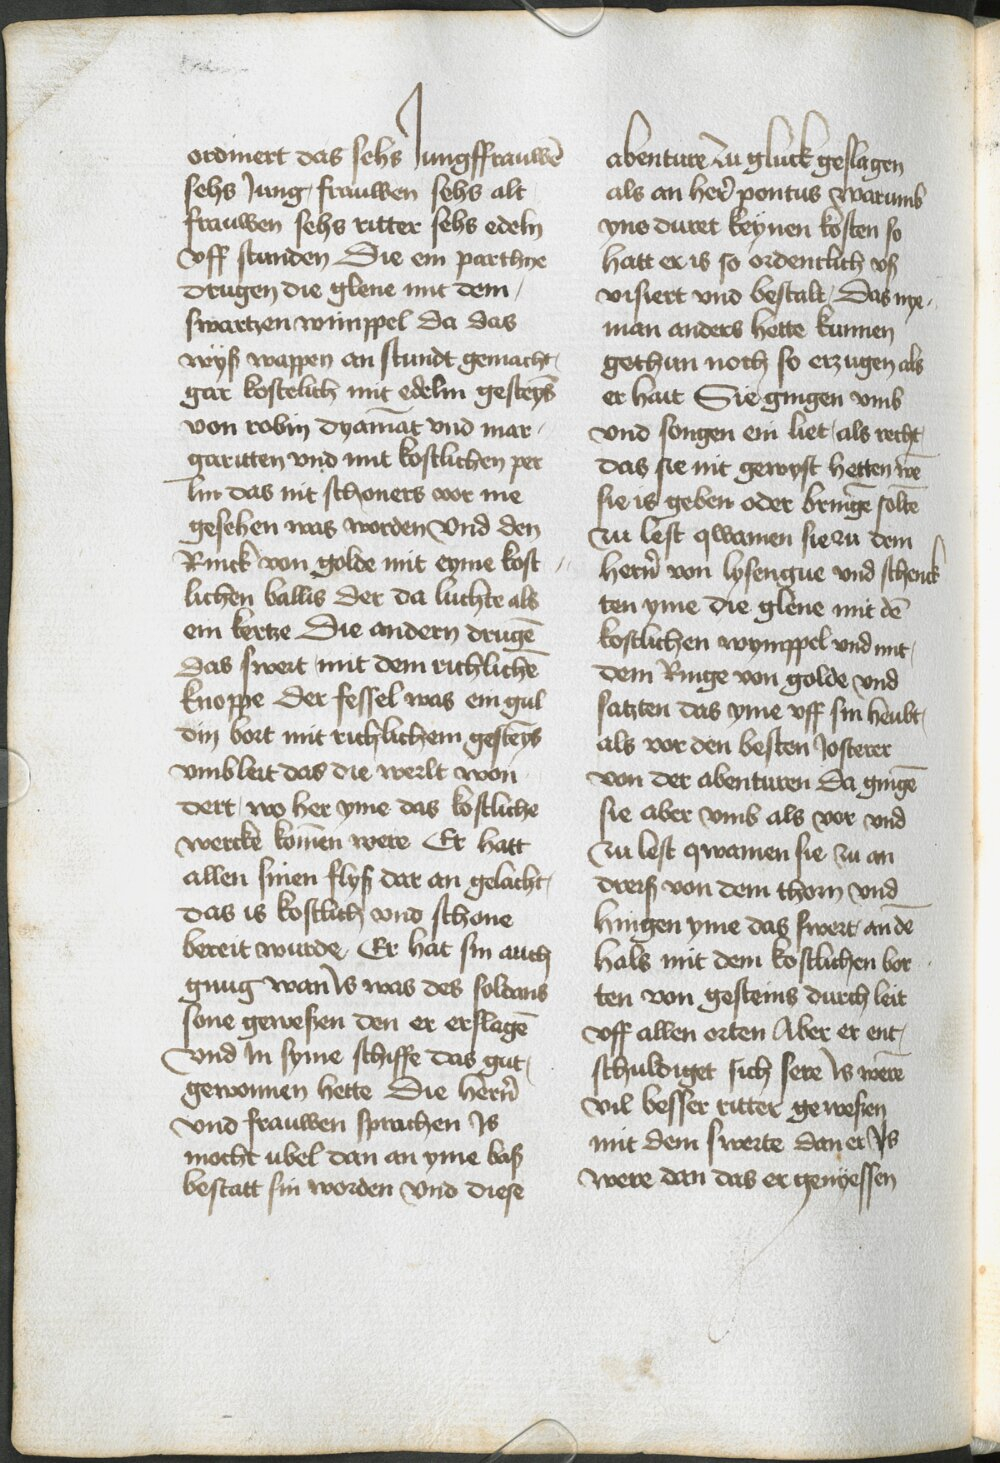 ordinert das sehs Jungffrauwē
sehs Jung frauwen sehs alt
frauwen sehs ritter sehs edeln
vff stunden Die ein parthye
drugen die glene mit dem
swartzen wimppel da das
wyß wappen an stundt gemacht
gar kostelich mit edelm gesteȳs
von robin dyamāt vnd mar
garitten vnd mit kostlichen per
lin das nit schoners vor me
gesehen was worden Vnd den
Rinck von golde mit eyme kost
lichen ballis der da luchte als
ein kertze Die andern drugē
das swert mit dem richlichē
knoppe der fessel was ein gul
din bort mit richlichem gesteȳs
vmbleit das die werlt won
dert wo her yme das kostliche
wercke komēn were Er hatt
allen sinen flyß dar an gelacht
das is kostlich vnd schone
bereit wurde Er hat sin auch
gnug wan Is was des soldans
sone geweßen den er erslagē
vnd In syme schiffe das gut
gewonnen hette Die hern̄
vnd frauwen sprachen Is
mocht ubel dan an yme baß
bestatt sin worden Vnd diese
abenture zu gluck geslagen
als an her pontus warumb
yne duret keynen kosten so
hatt er is so ordentlich vß
visiert vnd bestalt Das nye
man anders hette kunnen
gethun noch so erzugen als
er hait Sie gingen vmb
vnd songen ein liet als recht
das sie nit gewyst hetten we
sie is geben oder bringē soltē
zu lest qwamen sie zu dem
hern̄ von lysengue vnd schenck
ten yme die glene mit dē
kostlichen wymppel vnd mit
dem Ringe von golde vnd
satzten das yme vff sin heubt
als vor den besten Josterer
von der abenturen Da gingē
sie aber vmb als vor vnd
zu lest qwamen sie zu an
dreiß von dem thorn vnd
hingen yme das swert an dē
hals mit dem kostlichen bor
ten von gesteins durch leit
vff allen orten Aber er ent
schuldiget sich sere Is werē
vil besser ritter geweßen
mit dem swerte dan er Is
were dan das er genyessen